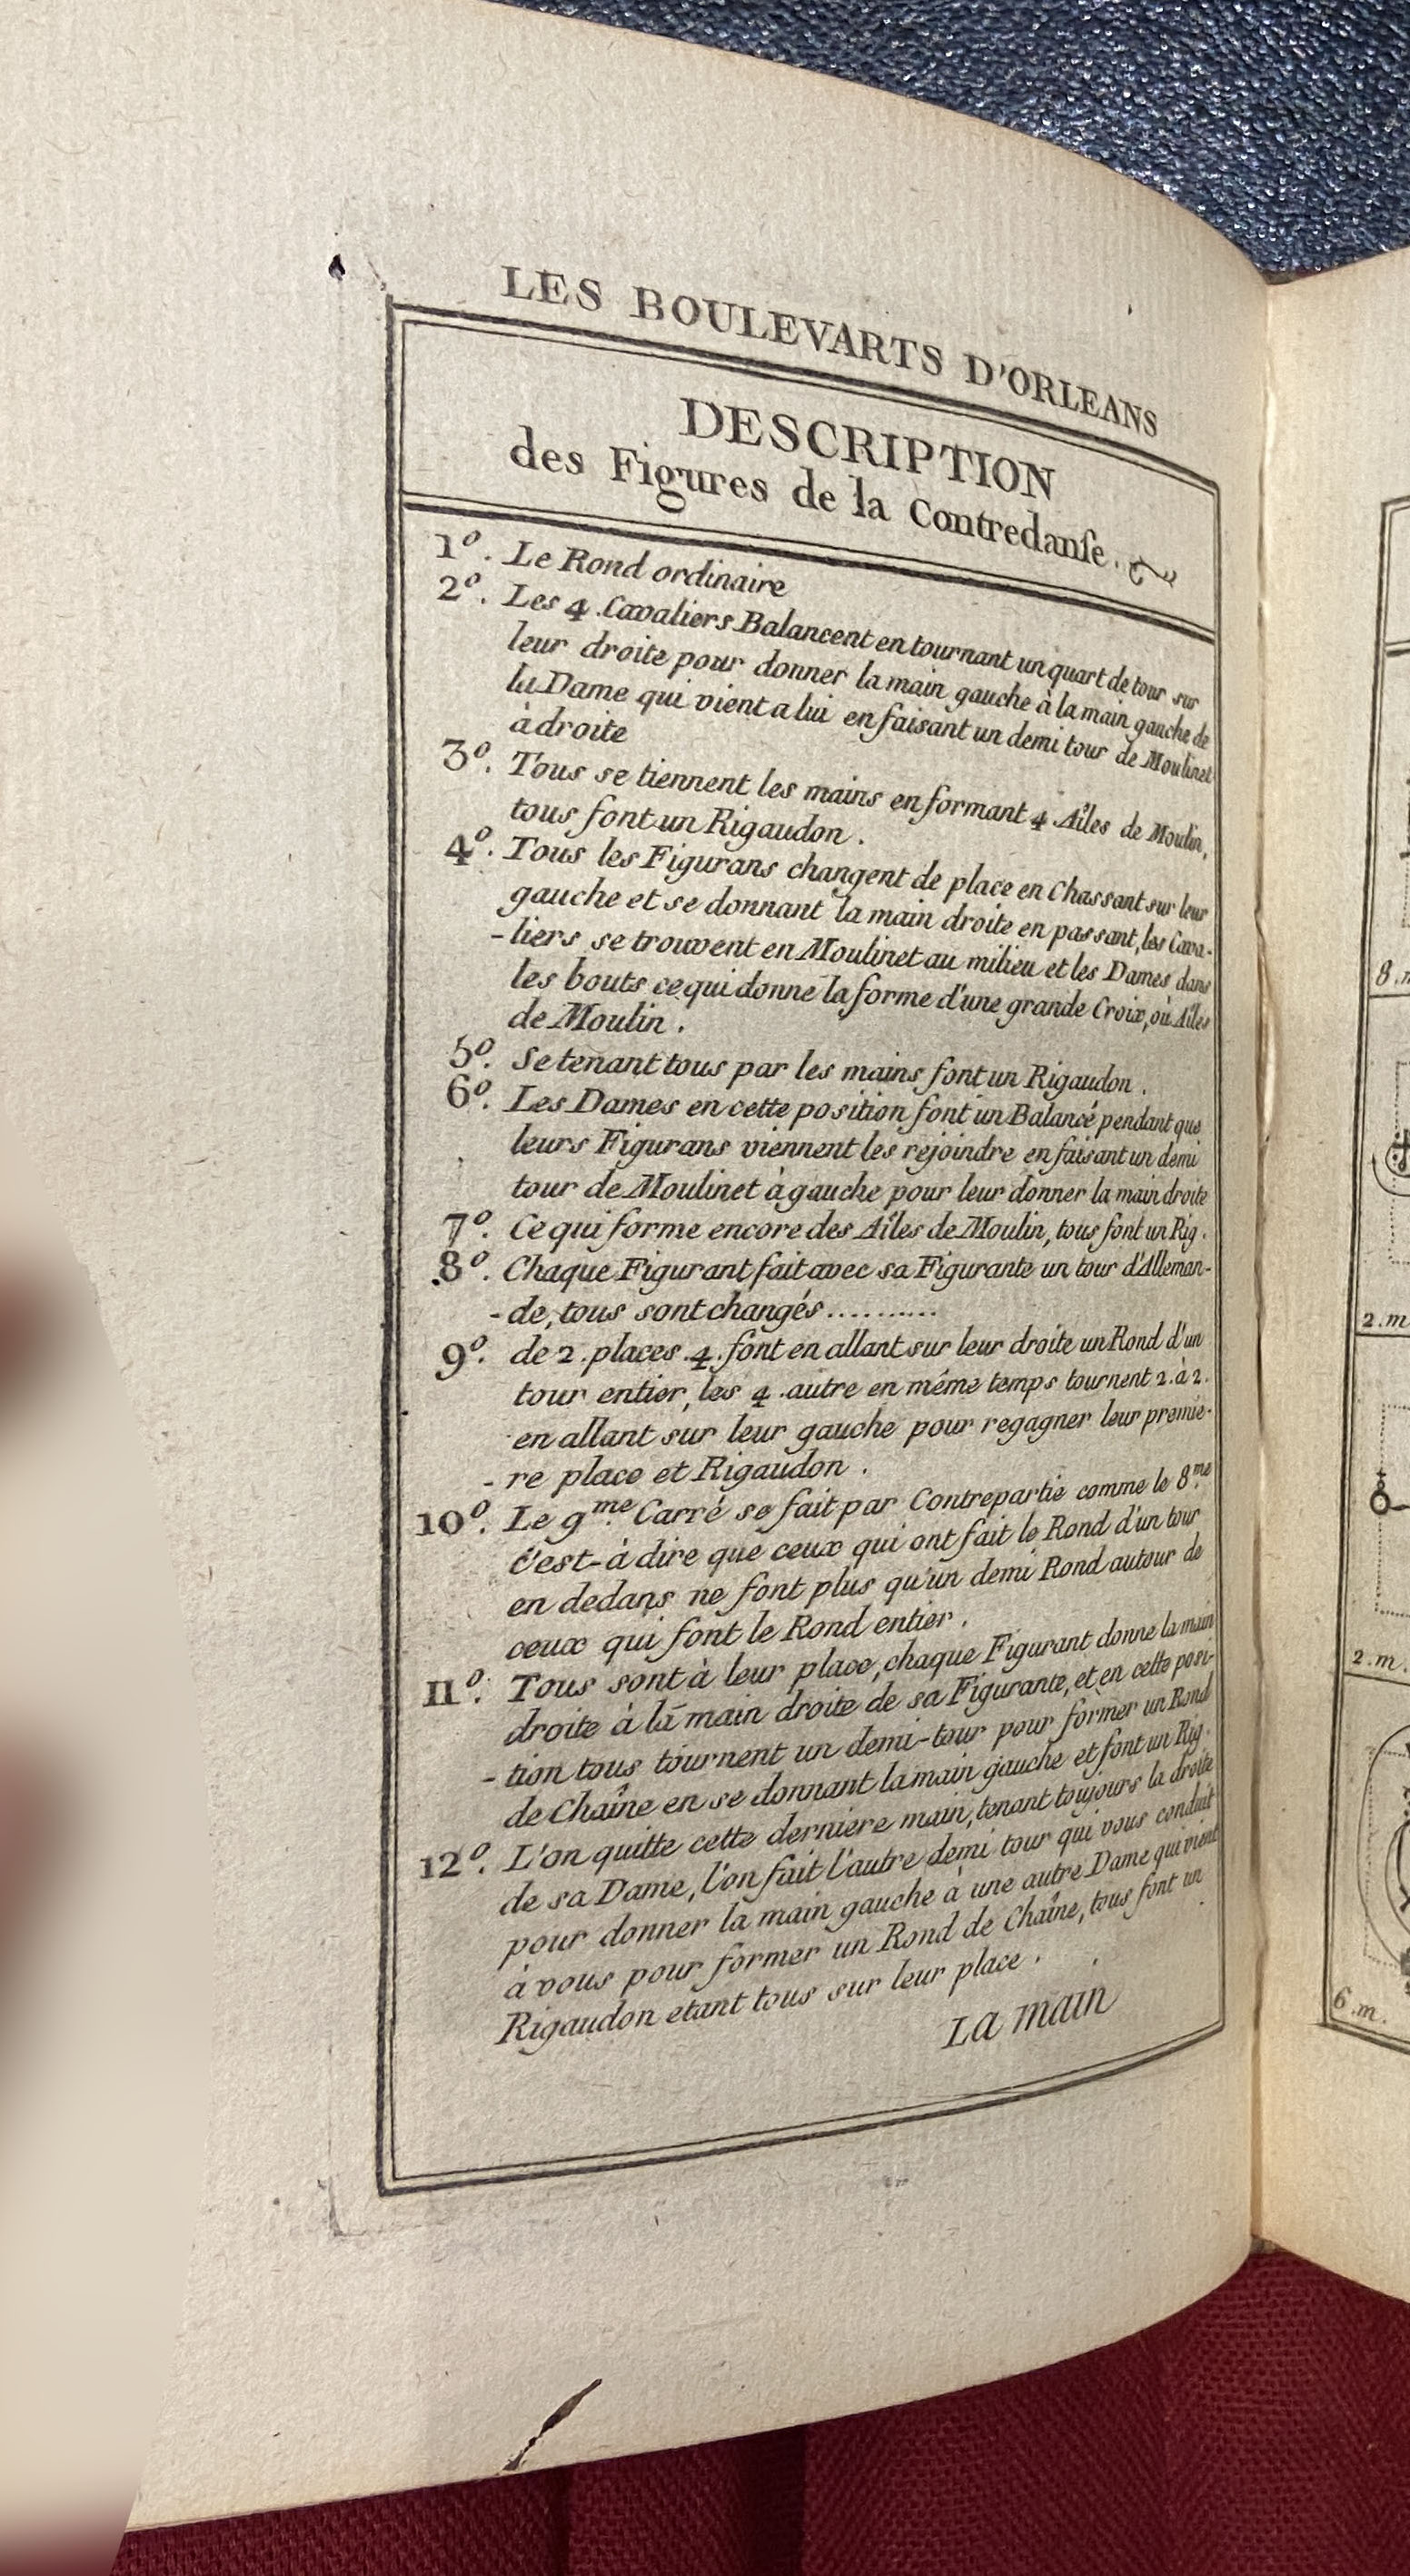 LES BOULEVARTS D'ORLEANS
DESCRIPTION
des Figures de la Contredanſe.
1º. Le Rond ordinaire
2º. Les 4 Cavaliers Balancent en tournant un quart de tour sur
leur droite pour donner la main gauche à la main gauche de
la Dame qui vient a lui en faisant un demi tour de Moulinet
à droite
3º. Tous se tiennent les mains en formant 4 Aîles de Moulin,
tous font un Rigaudon.
4º. Tous les Figurans changent de place en Chassant sur leur
gauche et se donnant la main droite en passant, les Cava-
-liers se trouvent en Moulinet au milieu et les Dames dans
les bouts ce qui donne la forme d'une grande Croix, où Aîles
de Moulin.
5º. Se tenant tous par les mains font un Rigaudon.
6º. Les Dames en cette position font un Balancé pendant que
leurs Figurans viennent les rejoindre en faisant un demi
tour de Moulinet à gauche pour leur donner la main droite
7º. Ce qui forme encore des Aîles de Moulin, tous font un Rig.
8º. Chaque Figurant fait avec sa Figurante un tour d'Alleman-
-de, tous sont changés..........
9º. de 2. places 4. font en allant sur leur droite un Rond d'un
tour entier, les 4. autre en même temps tournent 2. à 2.
en allant sur leur gauche pour regagner leur premie-
-re place et Rigaudon.
10º. Le 9.me Carré se fait par Contrepartie comme le 8.me
c'est-à dire que ceux qui ont fait le Rond d'un tour
en dedans ne font plus qu'un demi Rond autour de
ceux qui font le Rond entier.
11º. Tous sont à leur place, chaque Figurant donne la main
droite à la main droite de sa Figurante, et en cette posi-
-tion tous tournent un demi-tour pour former un Rond
de Chaîne en se donnant la main gauche et font un Rig.
12º. L'on quitte cette derniere main, tenant toujours la droite
de sa Dame, l'on fait l'autre demi tour qui vous conduit
pour donner la main gauche à une autre Dame qui vient
à vous pour former un Rond de Chaîne, tous font un
Rigaudon etant tous sur leur place.
La main
8.m
2.m
2.m.
6.m.